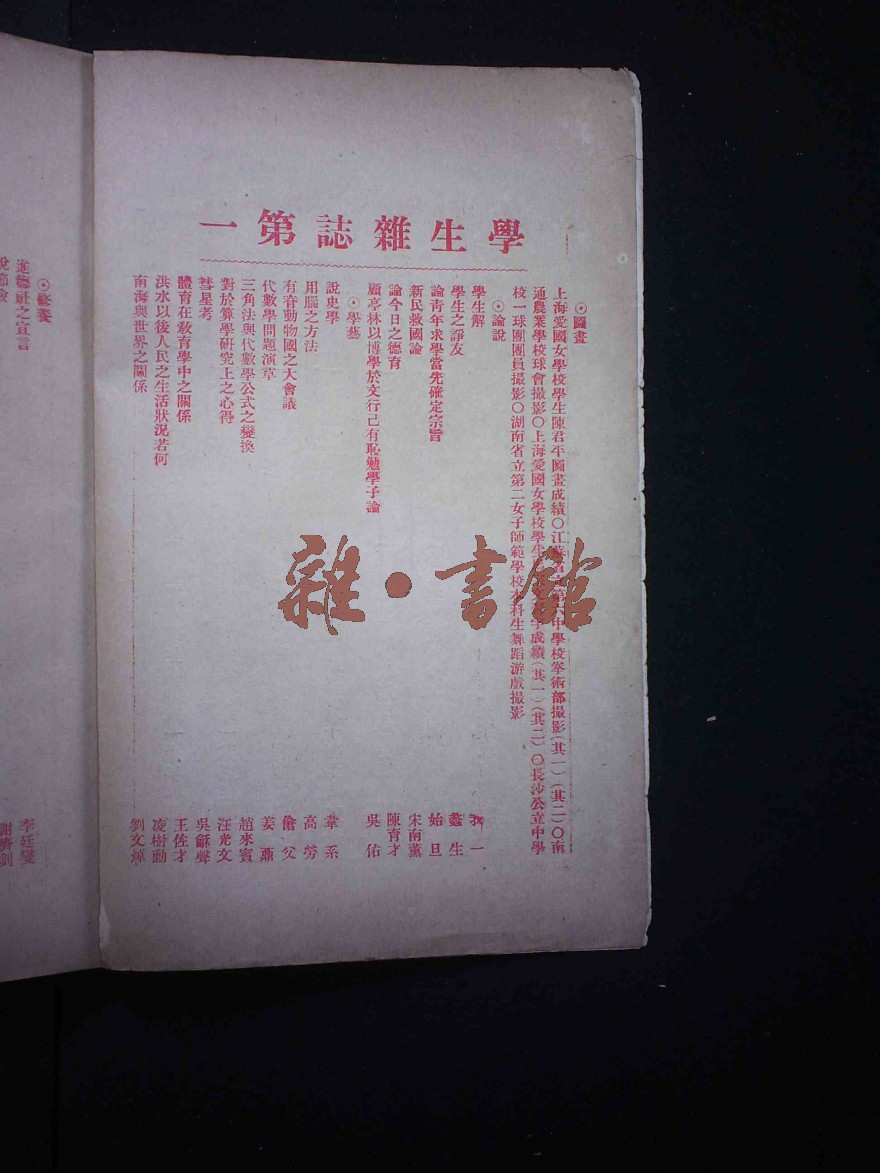 學生雜誌第一
⊙圖畫
上海愛國女學校學生陳君平圖畫成績〇江蘇省立第六中學校拳術部攝影(其一)(其二)〇南
通農業學校球會攝影〇上海愛國女學校學生 成績(其一)(其二)〇長沙公立中學
校一球團團員攝影〇湖南省立第二女子師範學校本科生舞蹈游戲攝影
⊙論說
學生解 我一
學生之諍友 蠡生
論青年求學當先確定宗旨 始旦
新民救國論 宋南薰
論今日之德育 陳育才
顧亭林以博學於文行己有恥勉學子論 吳佑
⊙學藝
說史學 韋系
用腦之方法 高勞
有脊動物國之大會議 傖父
代數學問題演草 姜鼐
三角法與代數學公式之變換 趙來賓
對於算學研究上之心得 汪光文
彗星考 吳龢聲
體育在教育學中之關係 王佐才
洪水以後人民之生活狀況若何 凌樹勳
南海與世界之關係 劉文
⊙修養
進德社之宣言 李廷燮
說節儉
雜·書館